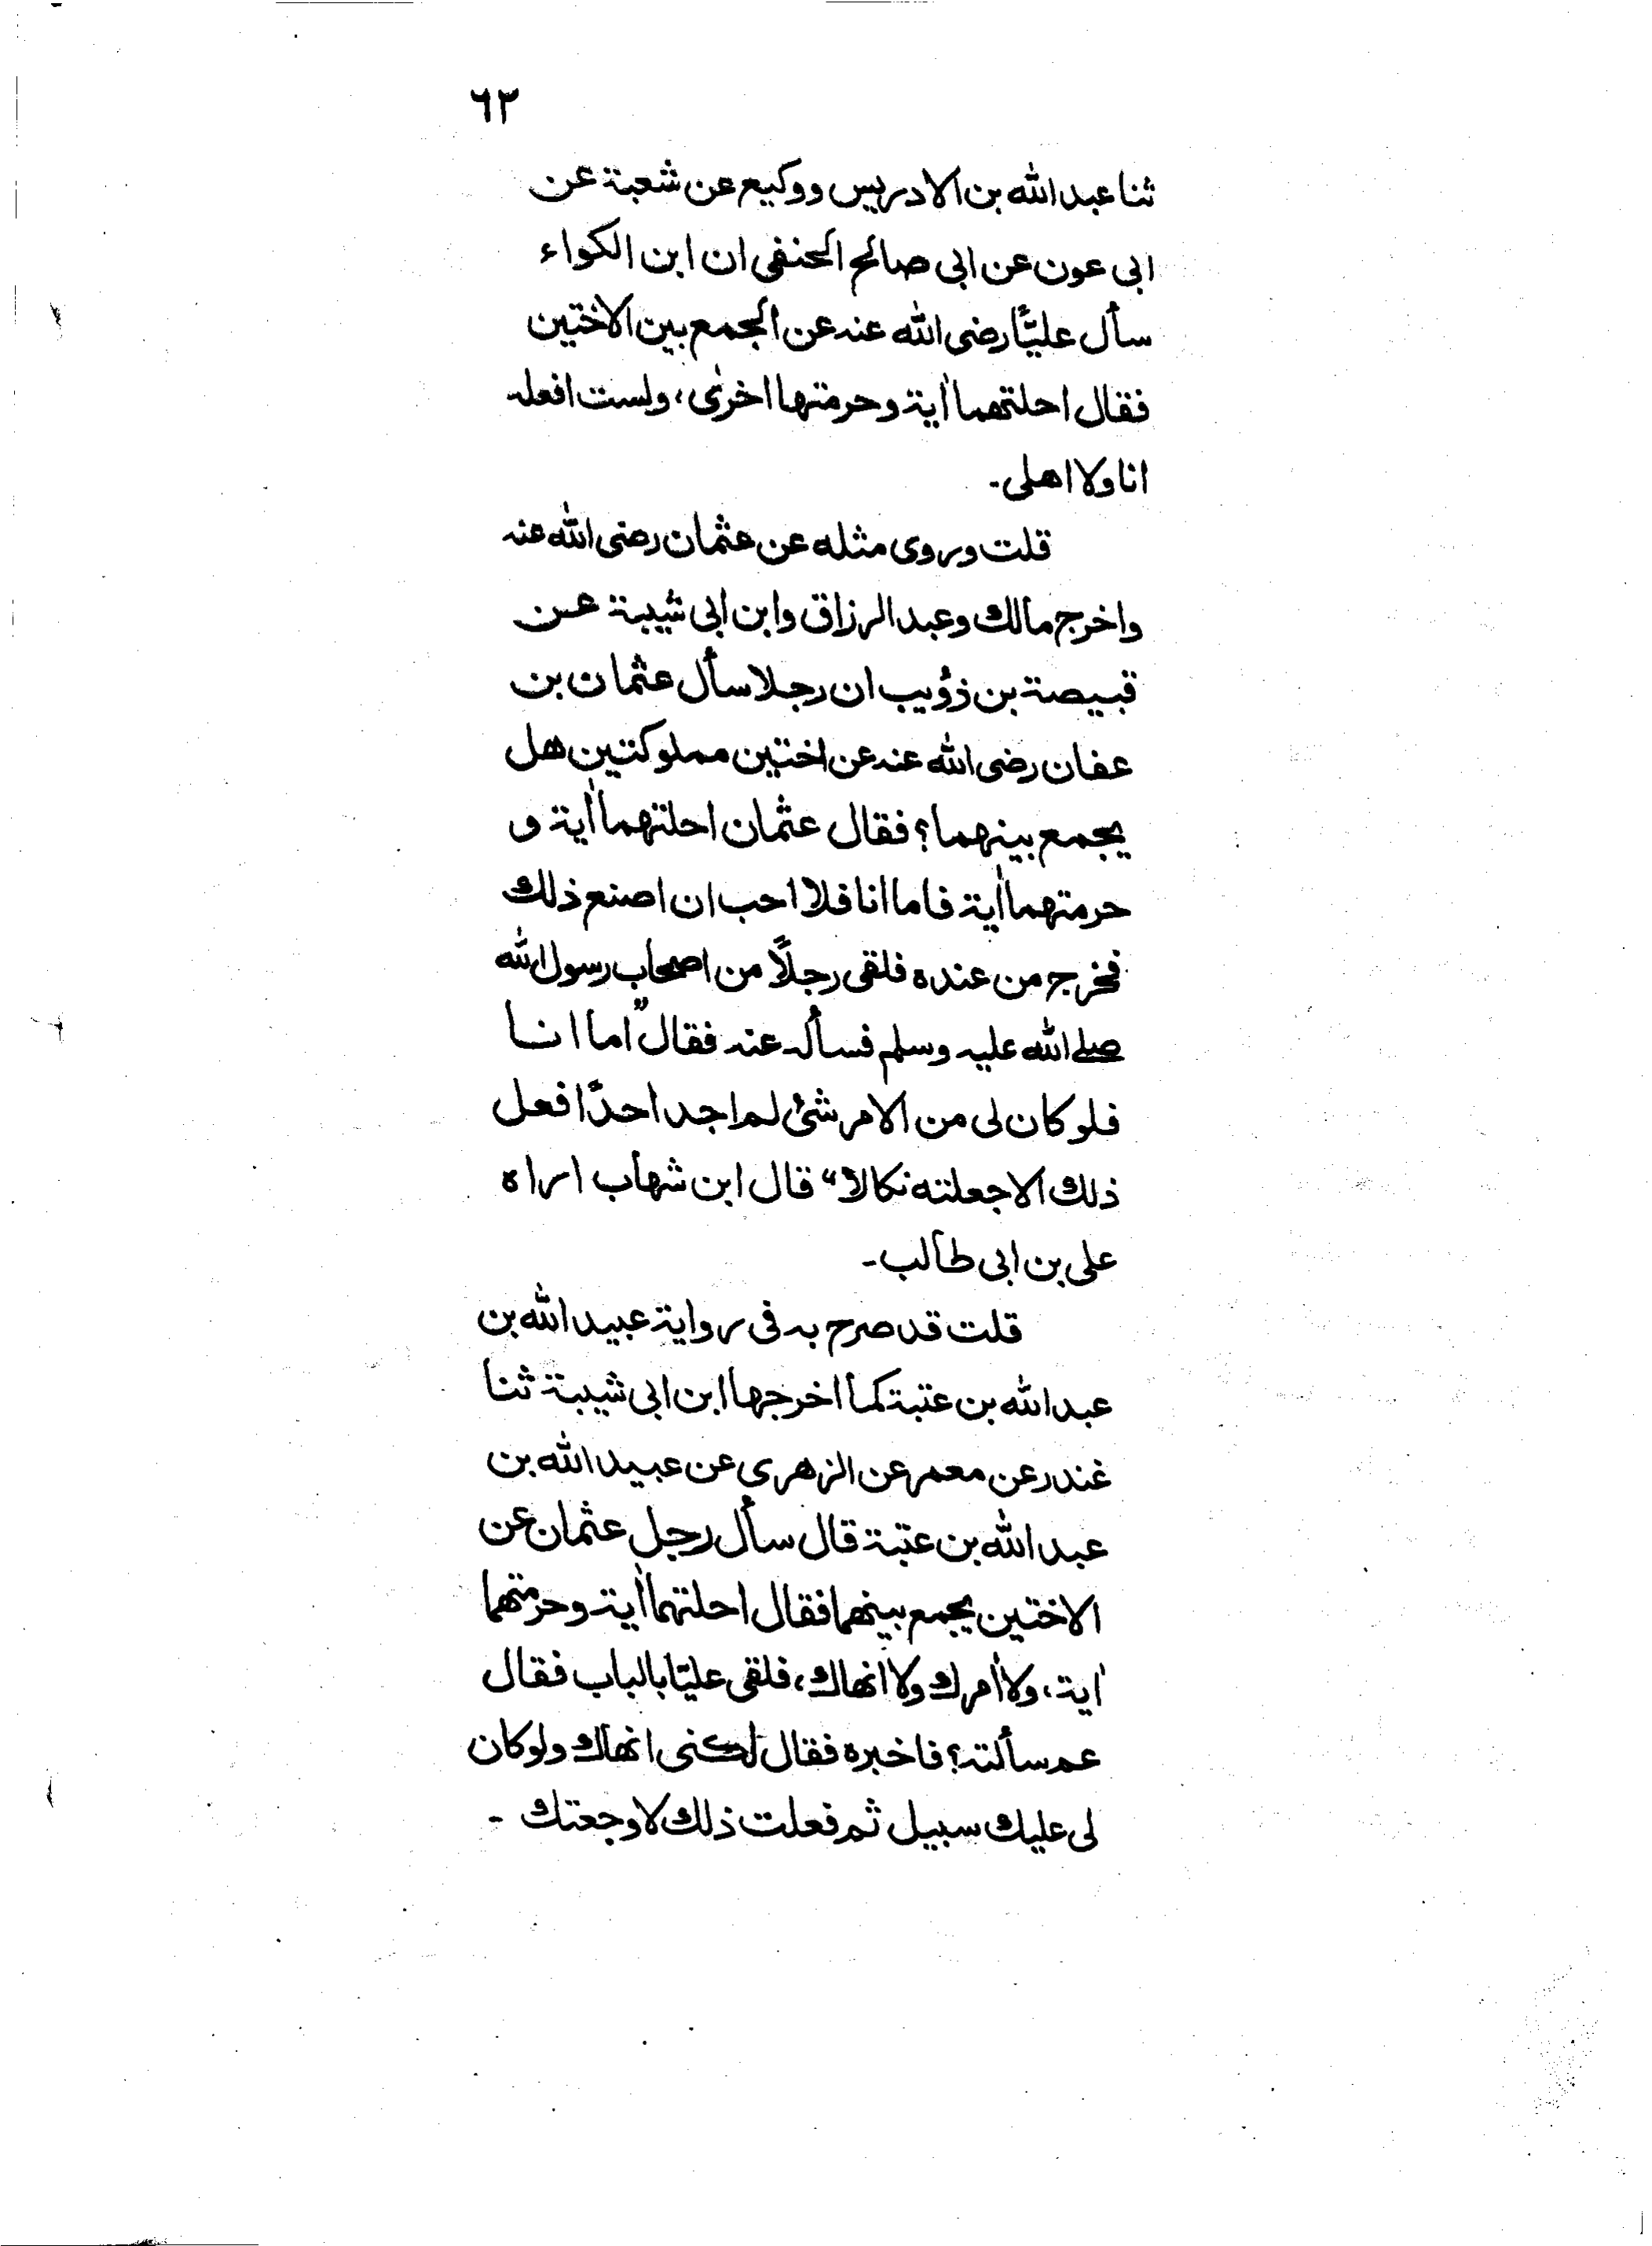 ٦٣
ثنا عبد الله بن الادريس ووكيع عن شعبة عن
ابی عون عن ابی صالح الحنفی ان ابن الكواء
سأل عليًّا رضی الله عنه عن الجمع بين الاختين
فقال احلتهما اٰية وحرمتها اخرٰی، ولست افعله
انا ولا اهلی۔
قلت وروی مثله عن عثمان رضی الله عنه
واخرج مالك وعبد الرزاق وابن ابی شيبة عن
قبيصة بن ذؤيب ان رجلا سأل عثمان بن
عفان رضی الله عنه عن اختين مملوكتين هل
يجمع بينهما؟ فقال عثمان احلتهما اٰية و
حرمتهما اٰية فاما انا فلا احب ان اصنع ذلك
فخرج من عنده فلقی رجلًا من اصحاب رسول الله
صلے الله عليه وسلم فسأله عنه فقال "اما انا
فلو كان لی من الامر شئ لم اجد احدًا فعل
ذلك الا جعلته نكالا" قال ابن شهاب اراه
علی بن ابی طالب۔
قلت قد صرح به فی رواية عبيد الله بن
عبد الله بن عتبة كما اخرجها ابن ابی شيبة ثنا
غندر عن معمر عن الزهری عن عبيد الله بن
عبد الله بن عتبة قال سأل رجل عثمان عن
الاختين يجمع بينهما فقال احلتهما اٰية وحرمتهما
اٰية، ولا اٰمرك ولا انهاك، فلقی عليّا بالباب فقال
عم سألته؟ فاخبره فقال لكنی انهاك ولو كان
لی عليك سبيل ثم فعلت ذلك لاوجعتك ۔